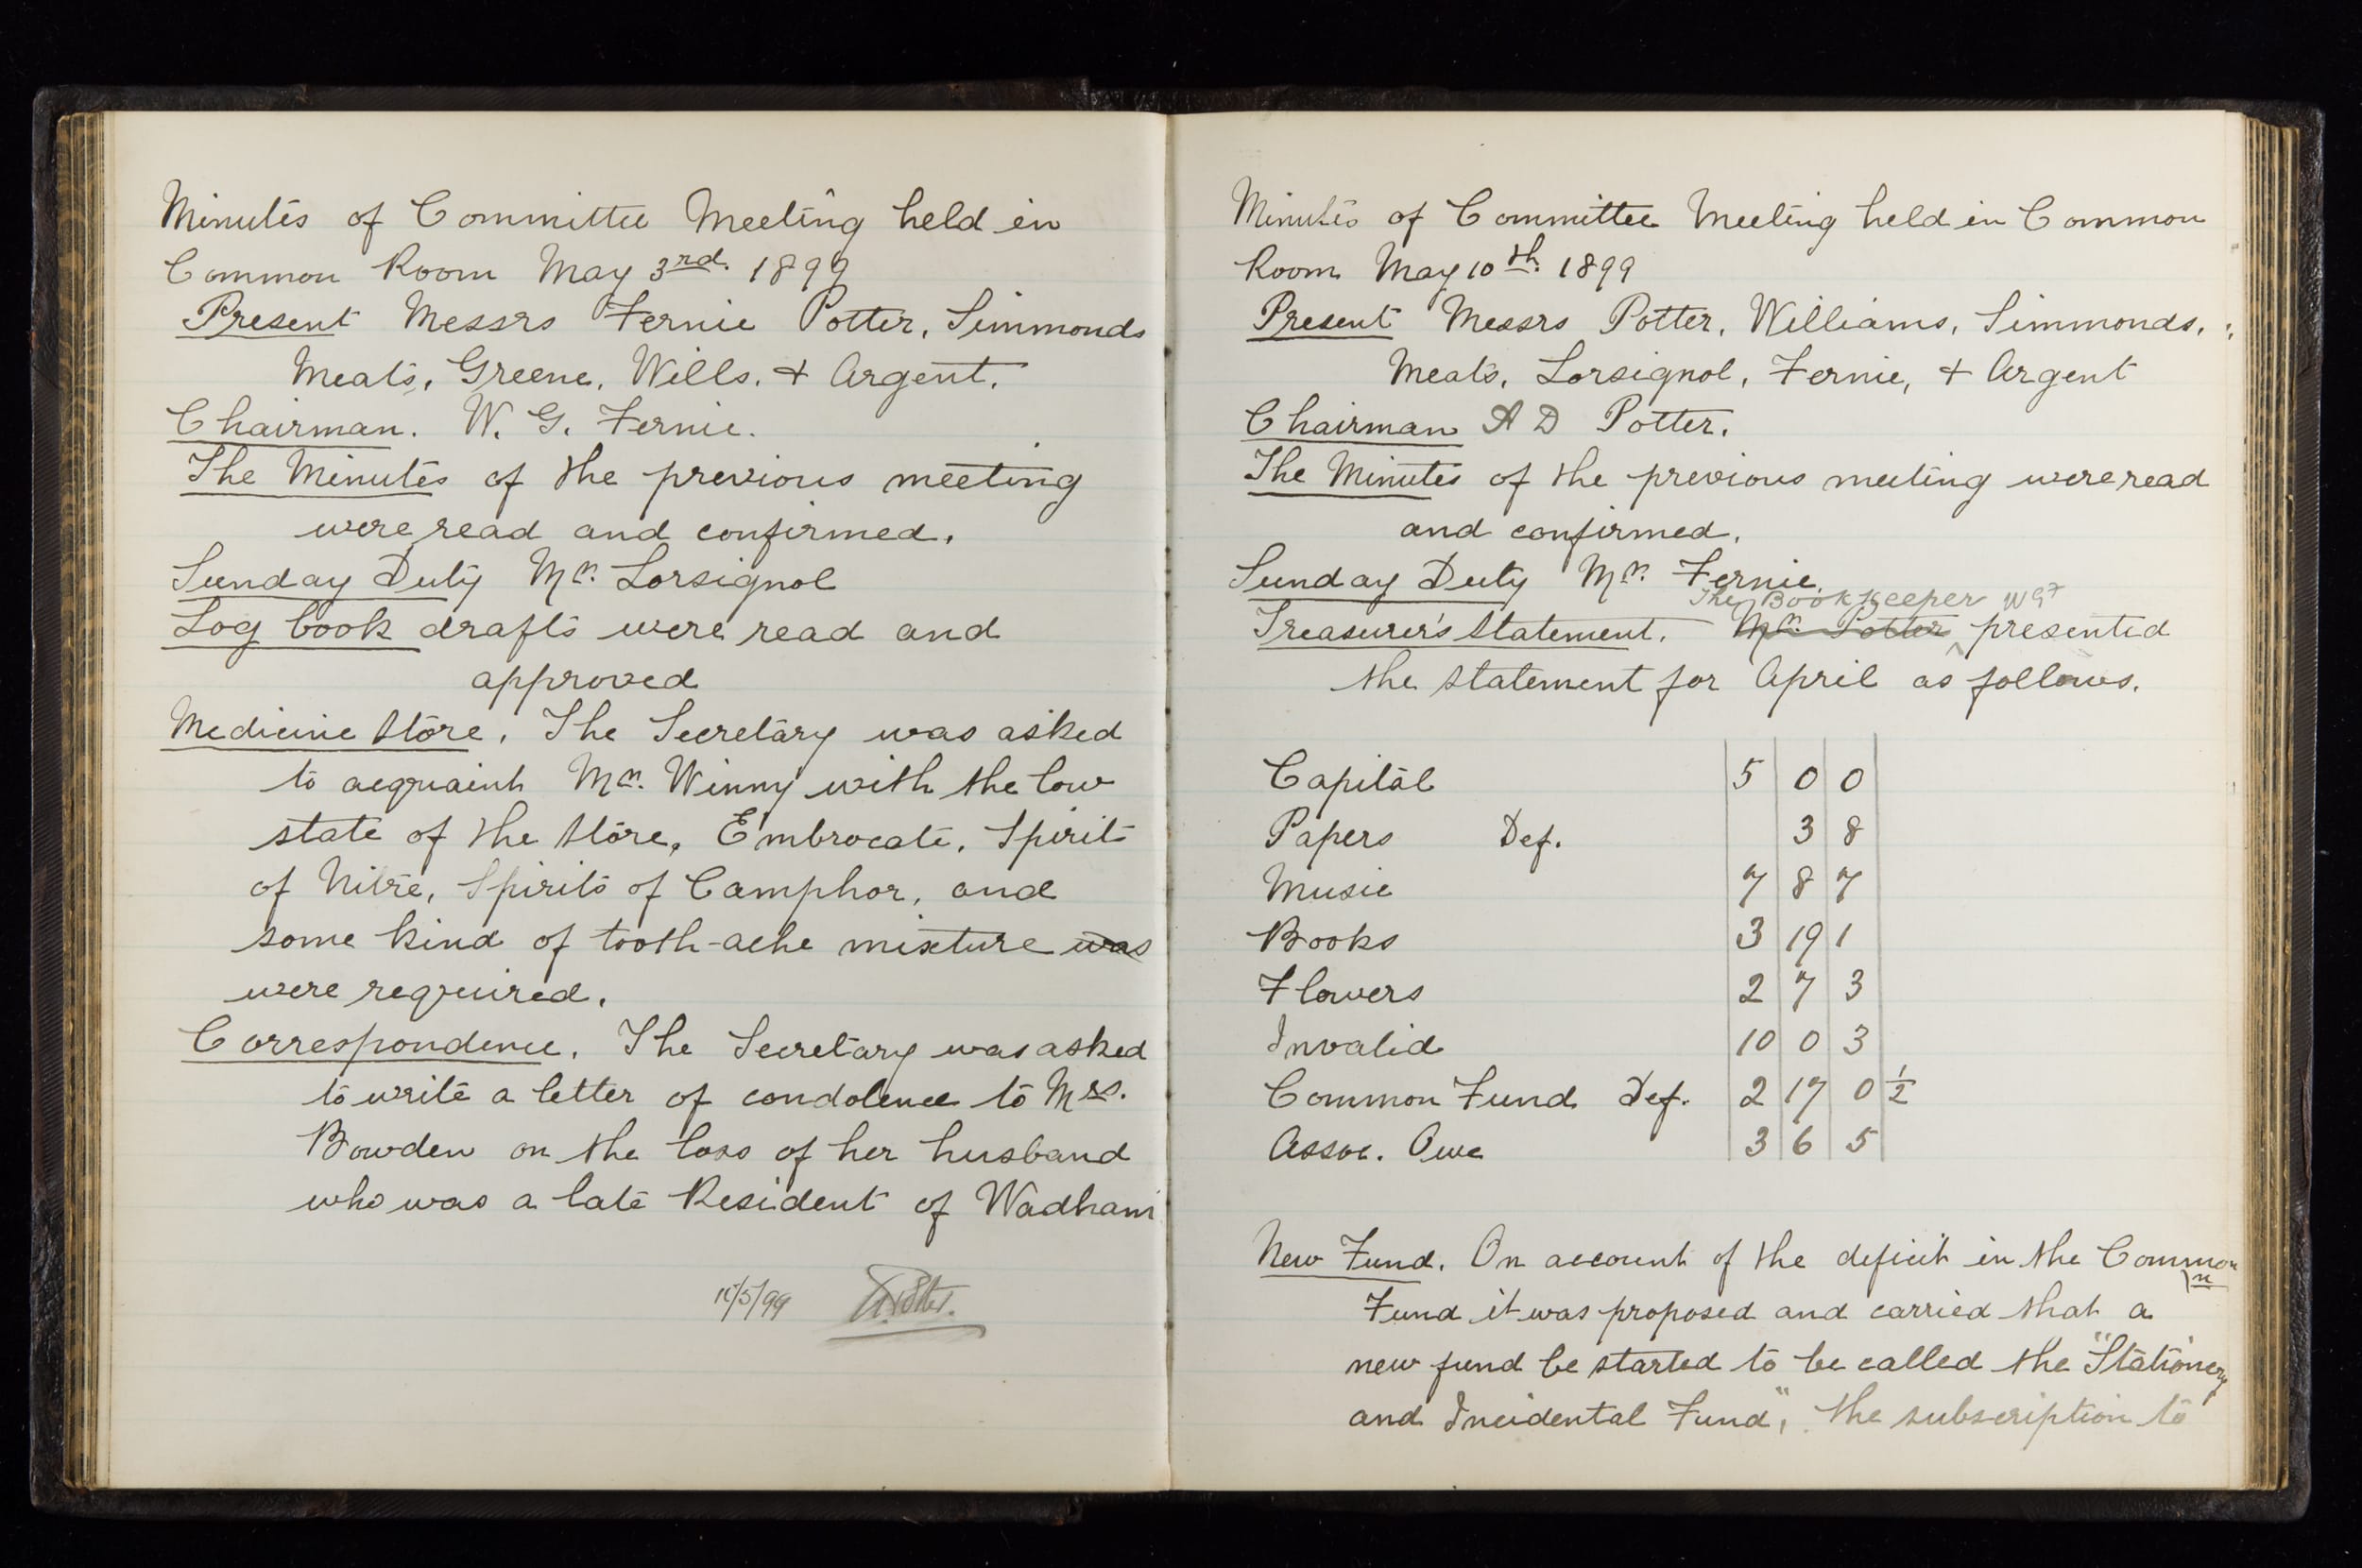 Minutes of Committee Meeting held in
Common Room May 3rd. 1899
Present Messrs Fernie Potter, Simmonds
Meats, Greene, Wills, + Argent.
Chairman. W. G. Fernie.
The Minutes of the previous meeting
were read and confirmed.
Sunday Duty Mr. Lorsignol
Log book drafts were read and
approved
Medicine Store. The Secretary was asked
to acquaint Mr. Winny with the low
state of the Store, Embrocate, Spirit
of Nitre, Spirits of Camphor, and
some kind of tooth-ache mixture was
were required.
Correspondence. The Secretary was asked
to write a letter of condolence to Mrs.
Bowden on the loss of her husband
who was a late Resident of Wadham
10/5/99
Minutes of Committee Meeting held in Common
Room May 10th. 1899
Present Messrs Potter, Williams, Simmonds,
Meats, Lorsignol, Fernie, + Argent
Chairman A D Potter.
The Minutes of the previous meeting were read
and confirmed.
Sunday Duty Mr. Fernie.
The Bookkeeper WGF
Treasurer's Statement. Mr. Potter presented
the statement for April as follows.
Capital 5 0 0
Papers Def. 3 8
Music 7 8 7
Books 3 19 1
Flowers 2 7 3
Invalid 10 0 3
Common Fund Def. 2 17 0 1/2
Assoc. Owe 3 6 5
New Fund. On account of the deficit in the Common
Fund it was proposed and carried that a
new fund be started to be called the "Stationery
and Incidental Fund", the subscription to